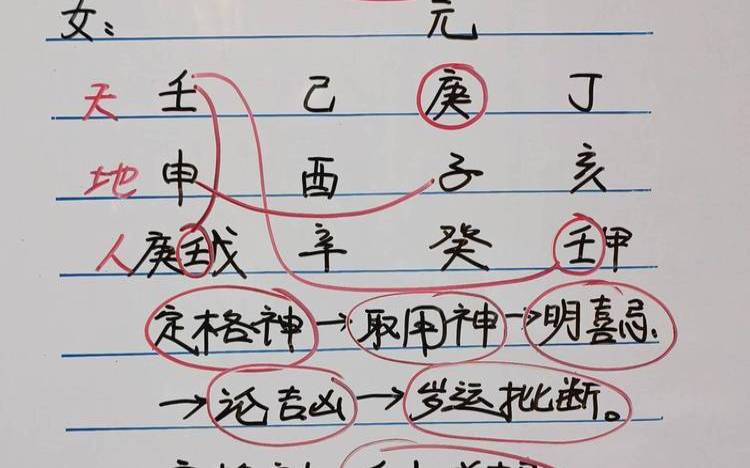 女： 元
天 壬 己 庚 丁
地 申 酉 子 亥
人 庚壬戊 辛 癸 壬甲
定格神→取用神→明喜忌
→论吉凶→岁运批断。